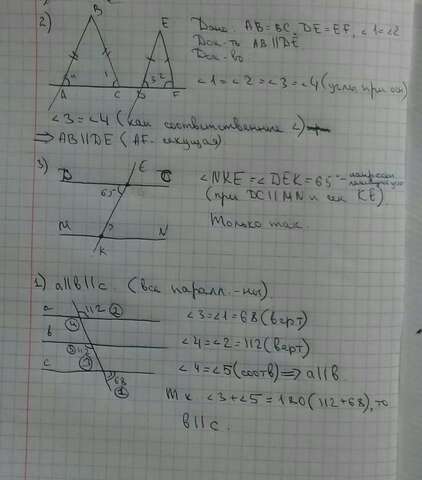 2)
B
E
A
4
1
C
D
3
2
F
Дано: AB=BC, DE=EF, ∠1=∠2
Док-ть AB∥DE
Док-во
∠1=∠2=∠3=∠4 (углы при осн)
∠3=∠4 (как соответственные ∠)
⇒ AB∥DE (AF-секущая)
3)
E
D
C
65°
M
N
K
∠NKE=∠DEK=65°-
(при DC∥MN и сек KE)
Только так.
1) a∥b∥c. (все паралл.-ны)
a
112
2
4
b
5
112
3
c
68
1
∠3=∠1=68 (верт)
∠4=∠2=112 (верт)
∠4=∠5 (соотв) ⇒ a∥b
Т к ∠3+∠5=180 (112+68), то
b∥c.